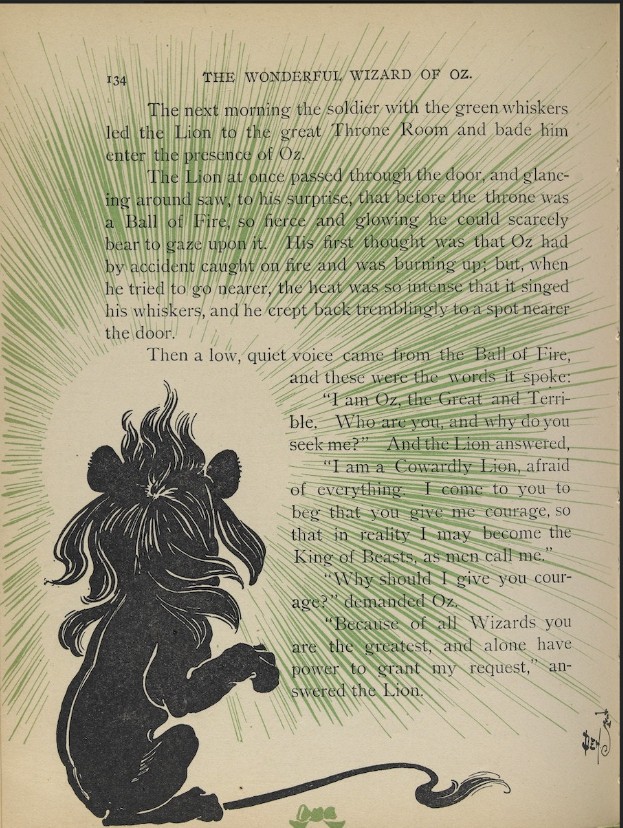 134
THE WONDERFUL WIZARD OF OZ.
The next morning the soldier with the green whiskers
led the Lion to the great Throne Room and bade him
enter the presence of Oz.
The Lion at once passed through the door, and glanc-
ing around saw, to his surprise, that before the throne was
a Ball of Fire, so fierce and glowing he could scarcely
bear to gaze upon it. His first thought was that Oz had
by accident caught on fire and was burning up; but, when
he tried to go nearer, the heat was so intense that it singed
his whiskers, and he crept back tremblingly to a spot nearer
the door.
Then a low, quiet voice came from the Ball of Fire,
and these were the words it spoke:
"I am Oz, the Great and Terri-
ble. Who are you, and why do you
seek me?" And the Lion answered,
"I am a Cowardly Lion, afraid
of everything. I come to you to
beg that you give me courage, so
that in reality I may become the
King of Beasts, as men call me."
"Why should I give you cour-
age?" demanded Oz.
"Because of all Wizards you
are the greatest, and alone have
power to grant my request," an-
swered the Lion.